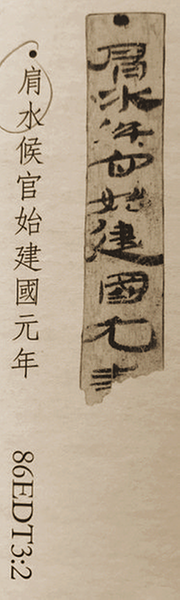 ●肩水候官始建國元年
●肩水候官始建國元年
86EDT3:2